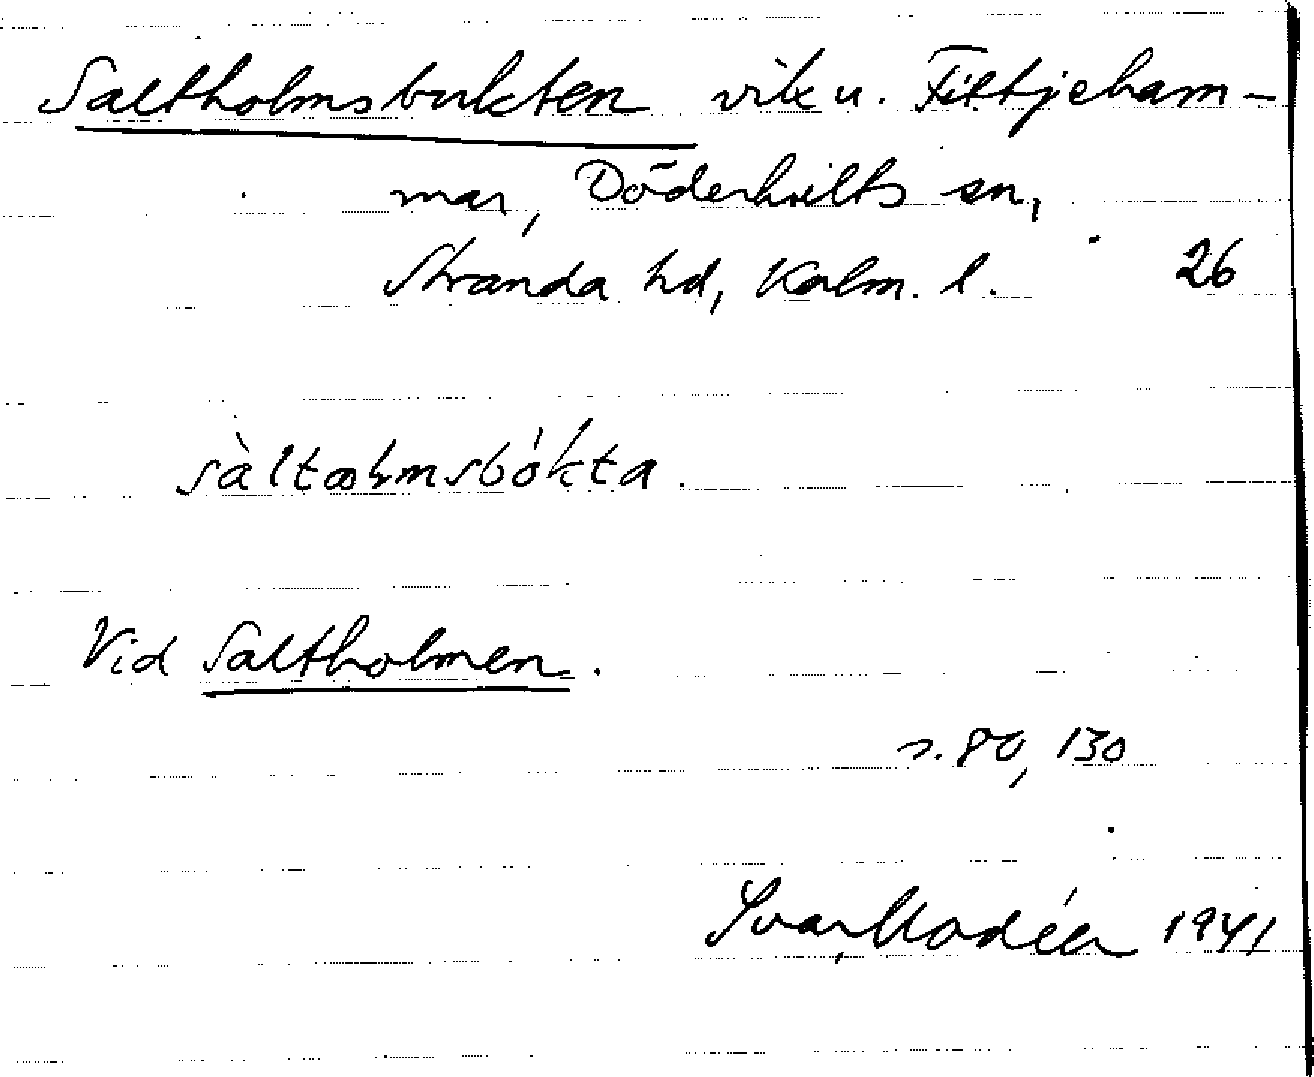 Saltholmsbukten vik u. Fittjeham-
mar, Döderhults sn,
Stranda hd, Kalm. l. 26
sàltꝏlmsbókta.
Vid Saltholmen.
s. 80, 130
Ivar Modéer 1941